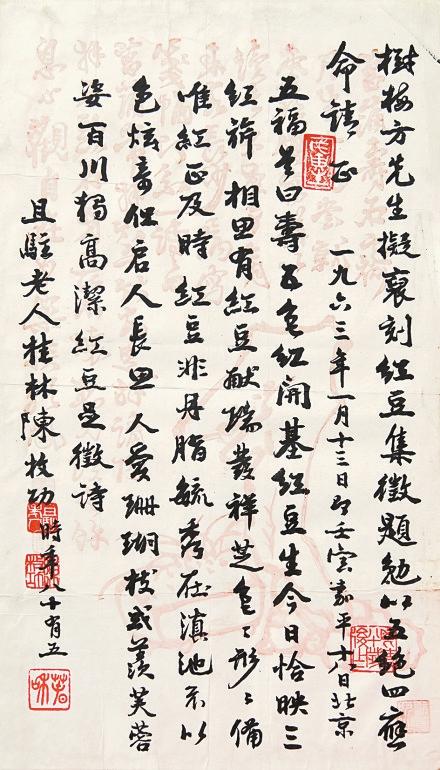 樹梅方先生擬裒刻紅豆集徵題勉以五絕四應
命請 正 一九六三年一月十三日即壬寅嘉平十八日北京
五福首曰壽五色紅開基紅豆生今日恰映三
紅旂相思有紅豆献瑞發祥芝色々形々備
唯紅正及時紅豆非丹脂毓秀在滇池不以
色炫奇但启人長思人愛珊瑚枝或羨芙蓉
姿百川獨高潔紅豆是徵詩
且駐老人桂林陳枚功 時年八十有五